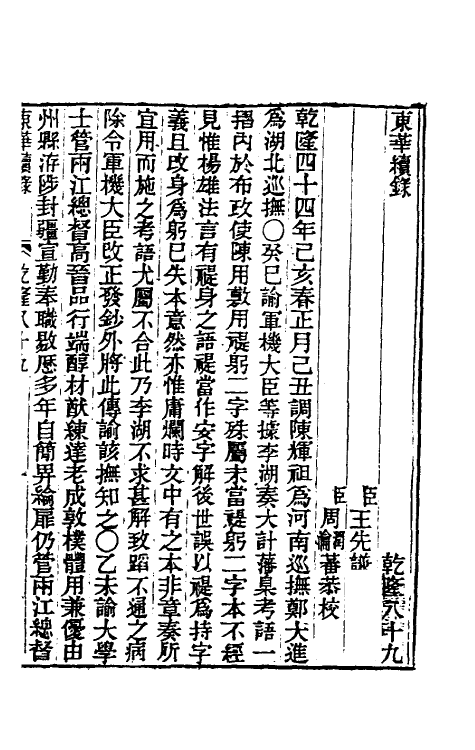 東華續錄　乾隆八十九
臣王先謙
臣周瀹蕃恭校
　潤
乾隆四十四年己亥春正月己丑調陳輝祖為河南巡撫鄭大進
為湖北巡撫〇癸巳諭軍機大臣等據李湖奏大計藩臬考語一
摺內於布政使陳用敷用禔躬二字殊屬未當禔躬二字本不經
見惟楊雄法言有禔身之語禔當作安字解後世誤以禔為持字
義且改身為躬已失本意然亦惟庸爛時文中有之本非章奏所
宜用而施之考語尤屬不合此乃李湖不求甚解致蹈不通之病
除令軍機大臣改正發鈔外將此傳諭該撫知之〇乙未諭大學
士管兩江總督高晉品行端醇材猷練達老成敦樸體用兼優由
州縣洊陟封疆宣勤奉職敭歷多年自簡畀綸扉仍管兩江總督
東華續錄　乾隆八十九　一